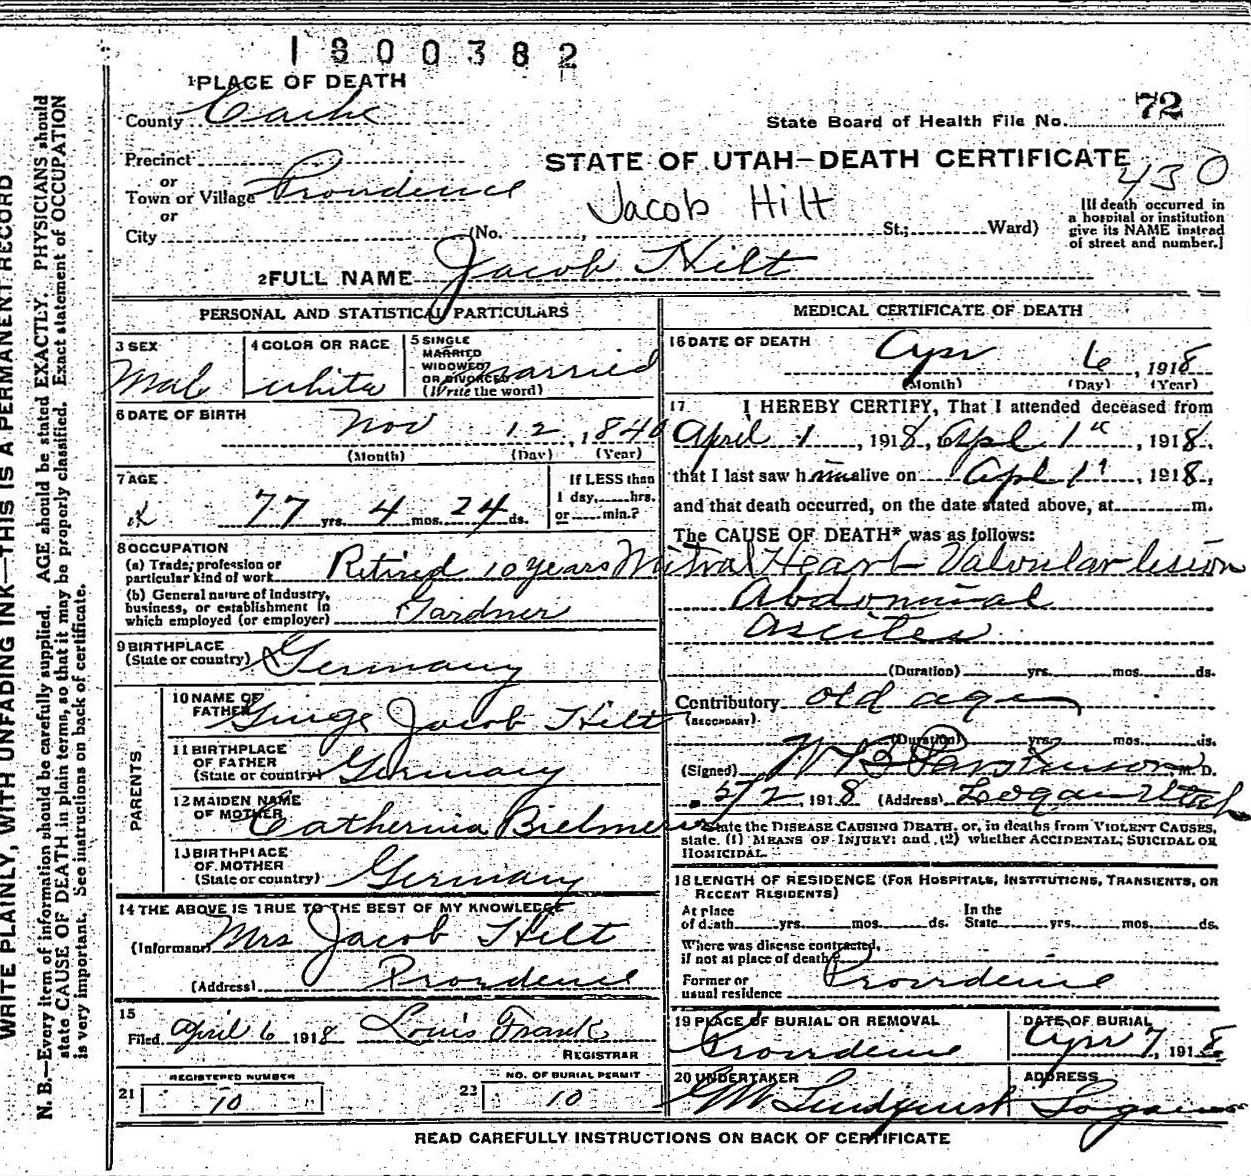 1800382
1 PLACE OF DEATH
County Cache
State Board of Health File No. 72
Precinct
or
Town or Village Providence
or
City (No. , St.; Ward)
STATE OF UTAH—DEATH CERTIFICATE
430
Jacob Hilt
[If death occurred in
a hospital or institution
give its NAME instead
of street and number.]
2 FULL NAME Jacob Hilt
PERSONAL AND STATISTICAL PARTICULARS
3 SEX
Male
4 COLOR OR RACE
white
5 SINGLE
MARRIED
WIDOWED
OR DIVORCED
(Write the word)
Married
6 DATE OF BIRTH
Nov 12, 1840
(Month) (Day) (Year)
7 AGE
77 yrs. 4 mos. 24 ds.
If LESS than
1 day, hrs.
or min.?
8 OCCUPATION
(a) Trade, profession or
particular kind of work Retired 10 years
(b) General nature of Industry,
business, or establishment in
which employed (or employer) Gardner
9 BIRTHPLACE
(State or country) Germany
PARENTS
10 NAME OF
FATHER Jacob Hilt
11 BIRTHPLACE
OF FATHER
(State or country) Germany
12 MAIDEN NAME
OF MOTHER Catherina
13 BIRTHPLACE
OF MOTHER
(State or country) Germany
14 THE ABOVE IS TRUE TO THE BEST OF MY KNOWLEDGE
(Informant) Mrs Jacob Hilt
(Address) Providence
15
Filed April 6 1918 Louis Frank
REGISTRAR
21 REGISTERED NUMBER
10
23 NO. OF BURIAL PERMIT
10
MEDICAL CERTIFICATE OF DEATH
16 DATE OF DEATH
Apr 6, 1918
(Month) (Day) (Year)
17 I HEREBY CERTIFY, That I attended deceased from
April 1, 1918, to Apl 1st, 1918,
that I last saw him alive on Apl 1st, 1918,
and that death occurred, on the date stated above, at m.
The CAUSE OF DEATH* was as follows:
Mitral Heart Valvular lesion
Abdominal
Ascites
(Duration) yrs. mos. ds.
Contributory old age
(SECONDARY)
(Duration) yrs. mos. ds.
(Signed) W B Parkinson M. D.
5/2, 1918 (Address) Logan Utah
*State the DISEASE CAUSING DEATH, or, in deaths from VIOLENT CAUSES,
state (1) MEANS OF INJURY; and (2) whether ACCIDENTAL, SUICIDAL OR
HOMICIDAL.
18 LENGTH OF RESIDENCE (FOR HOSPITALS, INSTITUTIONS, TRANSIENTS, OR
RECENT RESIDENTS)
At place
of death yrs. mos. ds.
In the
State yrs. mos. ds.
Where was disease contracted,
if not at place of death?
Former or
usual residence Providence
19 PLACE OF BURIAL OR REMOVAL
Providence
DATE OF BURIAL
Apr 7, 1918
20 UNDERTAKER
GW Lindquist
ADDRESS
Logan
READ CAREFULLY INSTRUCTIONS ON BACK OF CERTIFICATE
WRITE PLAINLY, WITH UNFADING INK—THIS IS A PERMANENT RECORD
N. B.—Every item of information should be carefully supplied. AGE should be stated EXACTLY. PHYSICIANS should
state CAUSE OF DEATH in plain terms, so that it may be properly classified. Exact statement of OCCUPATION
is very important. See instructions on back of certificate.